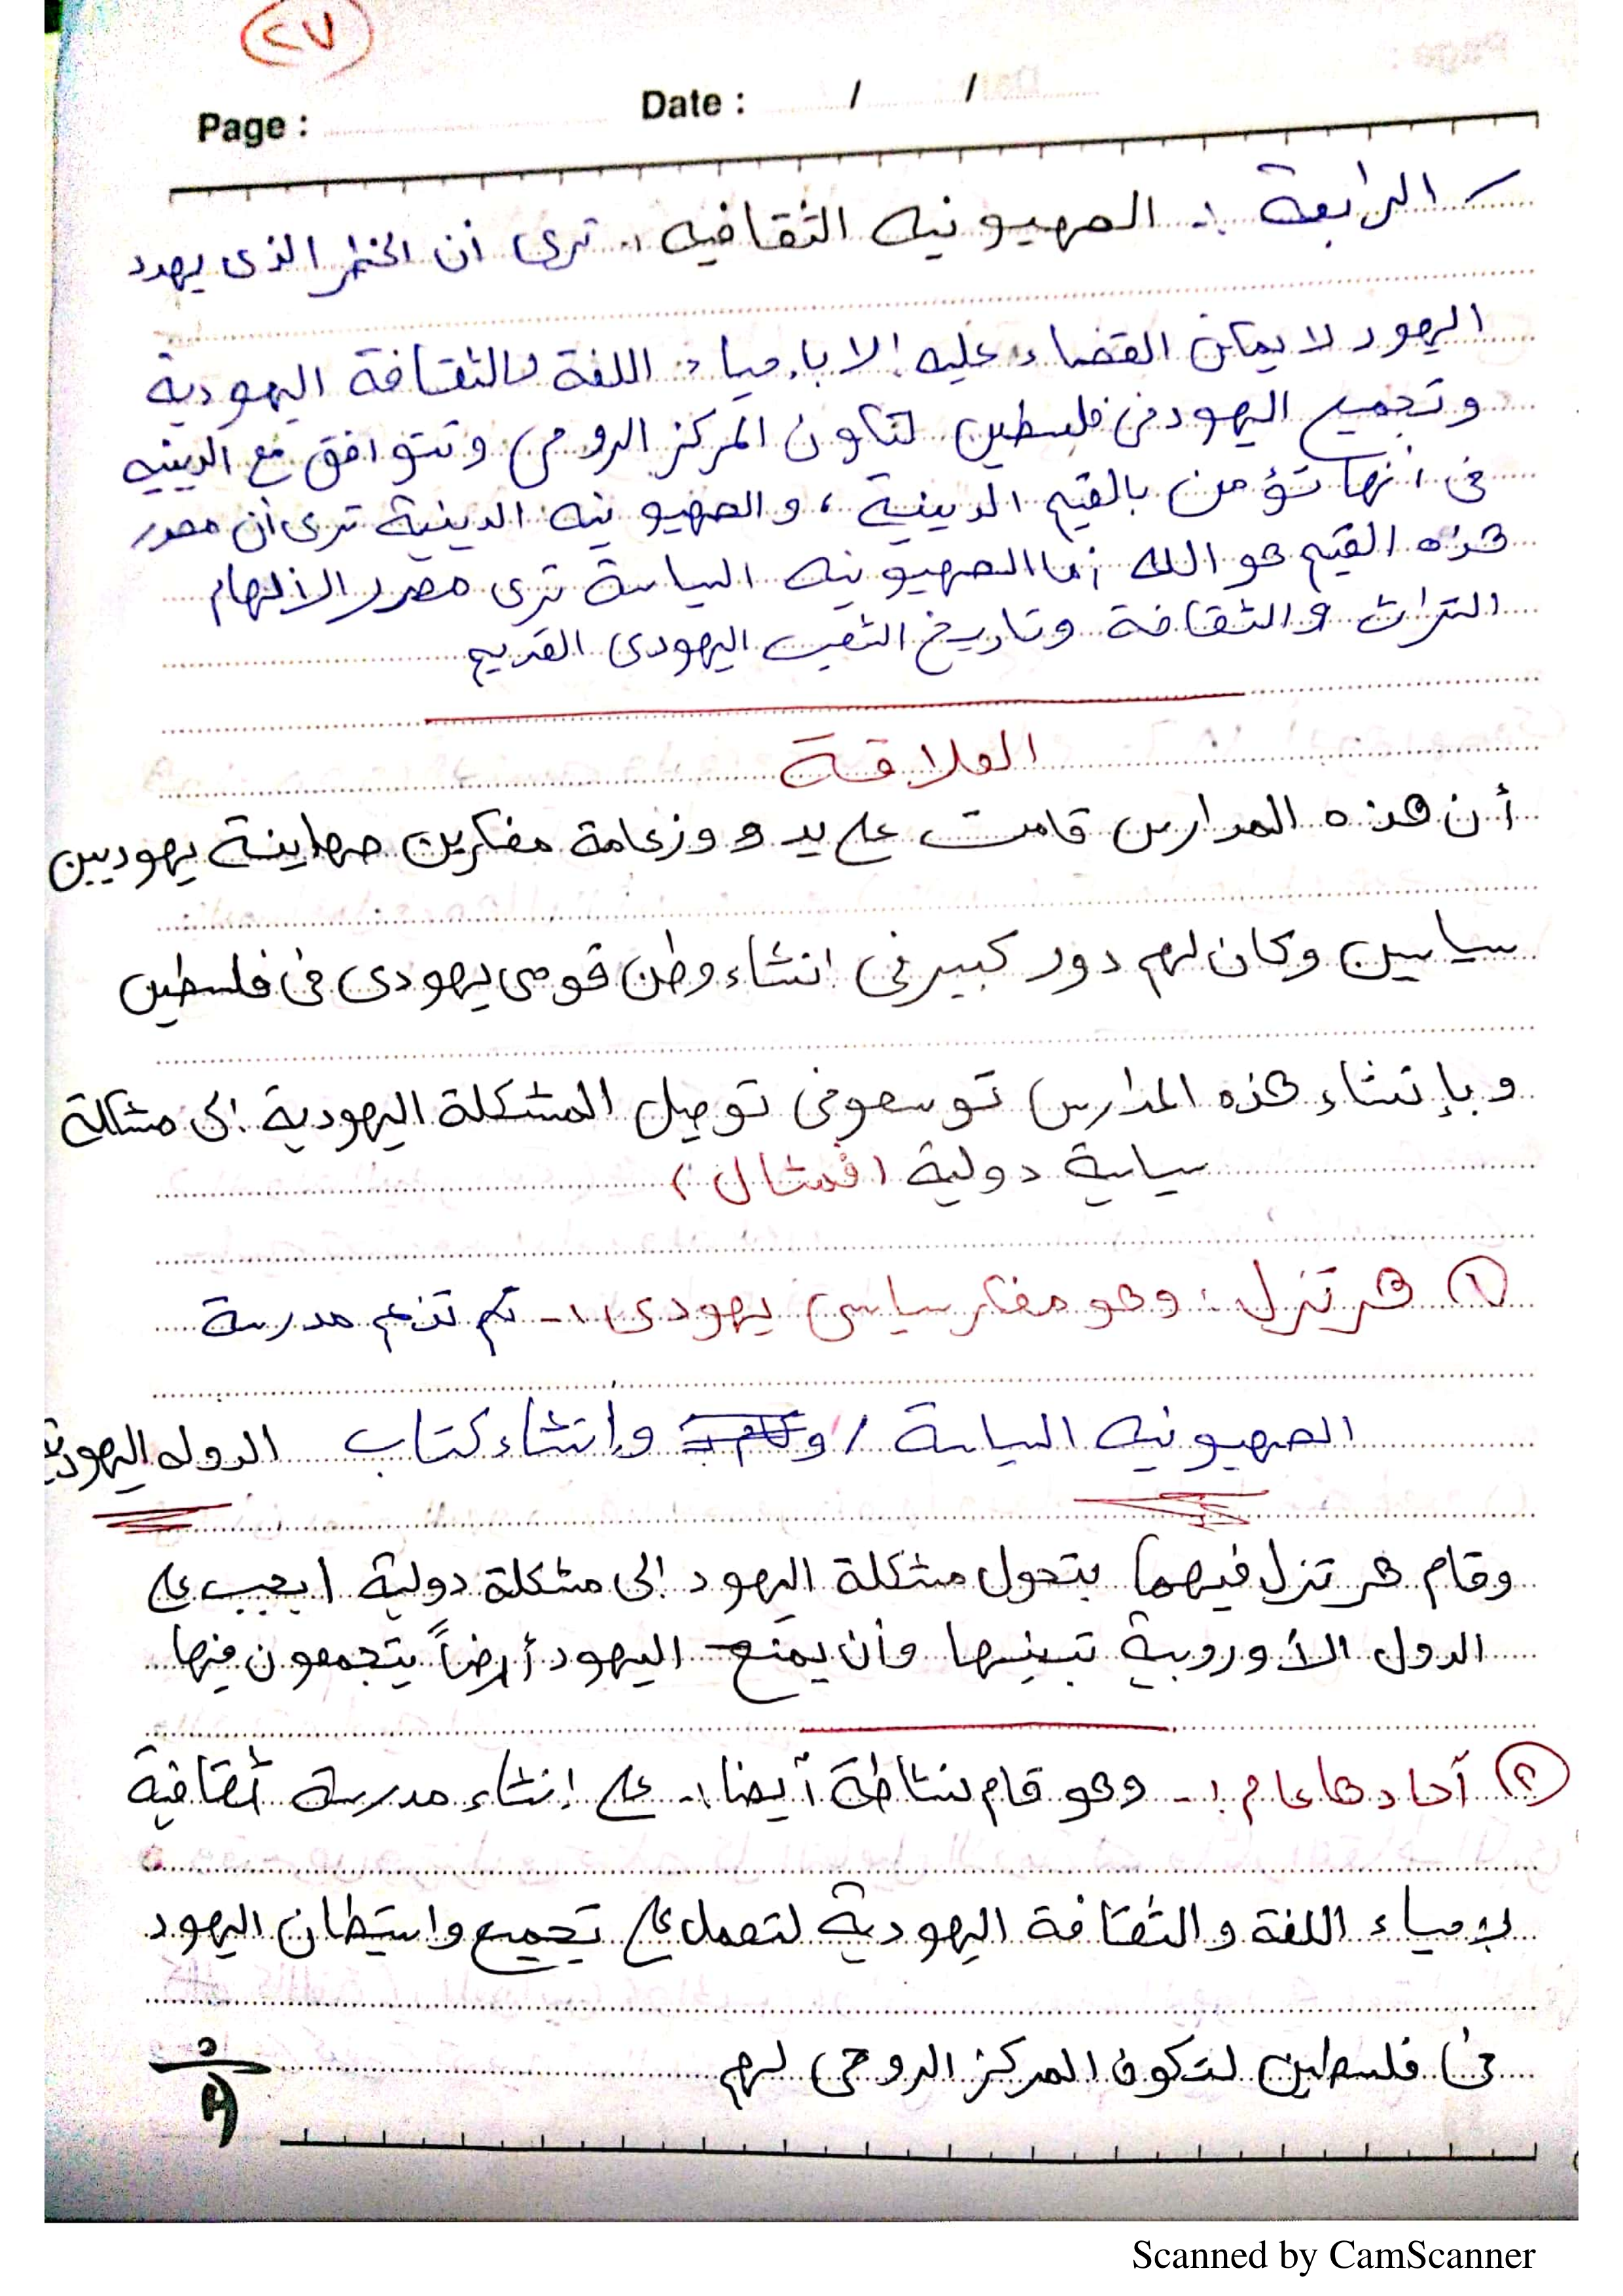 ٢٧
Page : Date : / /
الرابعة :- الصهيونيه الثقافيه :- ترى أن الخطر الذى يهدد
اليهود لا يمكن القضاء عليه إلا بإحياء اللغة والثقافة اليهودية
وتجميع اليهود فى فلسطين لتكون المركز الروحى وتتوافق مع الدينيه
فى أنها تؤمن بالقيم الدينية ، والصهيونيه الدينية ترى أن مصدر
هذه القيم هو الله أما الصهيونيه السياسة ترى مصدر الالهام
التراث والثقافة وتاريخ الشعب اليهودى القديم
العلاقة
أن هذه المدارس قامت على يد و وزعامة مفكرين صهاينة يهوديين
سياسين وكان لهم دور كبير فى انشاء وطن قومى يهودى فى فلسطين
وبإنشاء هذه المدارس توسعو فى توصيل المشكلة اليهودية إلى مشكلة
سياسية دولية (فمثال)
١ هرتزل : وهو مفكر سياسى يهودى :- تم تزعم مدرسة
الصهيونيه السياسة / و وإنشاء كتاب الدوله اليهودية
وقام هرتزل فيهما بتحول مشكلة اليهود إلى مشكلة دولية ا يجب على
الدول الأوروبية تبنيها وأن يمنح اليهود أرضاً يتجمعون فيها
٢ آحاد هاعام :- وهو قام بنشاطة أيضا :- على إنشاء مدرسة ثقافية
لإحياء اللغة والثقافة اليهودية لتعمل على تجميع واستيطان اليهود
فى فلسطين لتكون المركز الروحى لهم
Scanned by CamScanner